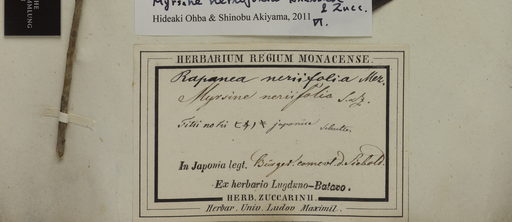 HE
MMLUNG
Myrsine neriifolia Siebold
& Zucc.
Hideaki Ohba & Shinobu Akiyama, 2011 VI.
HERBARIUM REGIUM MONACENSE.
Rapanea neriifolia Mez.
Myrsine neriifolia S. & Z.
japonice
In Japonia legt. Bürger comevt. d. Siebold.
Ex herbario Lugduno-Batavo.
HERB. ZUCCARINII.
Herbar. Univ. Ludov. Maximil.